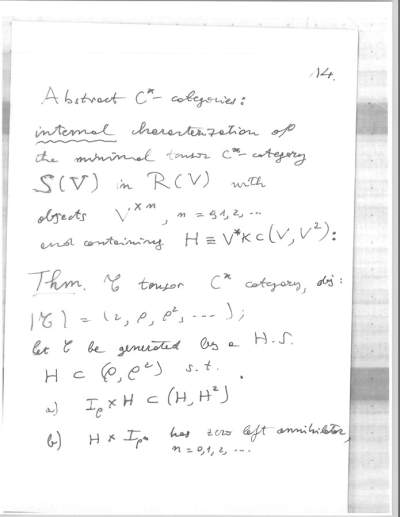 14.
Abstract C*-categories:
internal characterization of
the minimal tensor C*-category
S(V) in R(V) with
objects V^{×n}, n = 0,1,2,...
and containing H ≡ V*K ⊂ (V, V²):
Thm. 𝒯 tensor C* category, obj:
|𝒯| = (ι, ρ, ρ², ...);
let 𝒯 be generated by a H.S.
H ⊂ (ρ, ρ²) s.t.
a) I_ρ × H ⊂ (H, H²)
b) H × I_ρⁿ has zero left annihilator,
n = 0,1,2,...